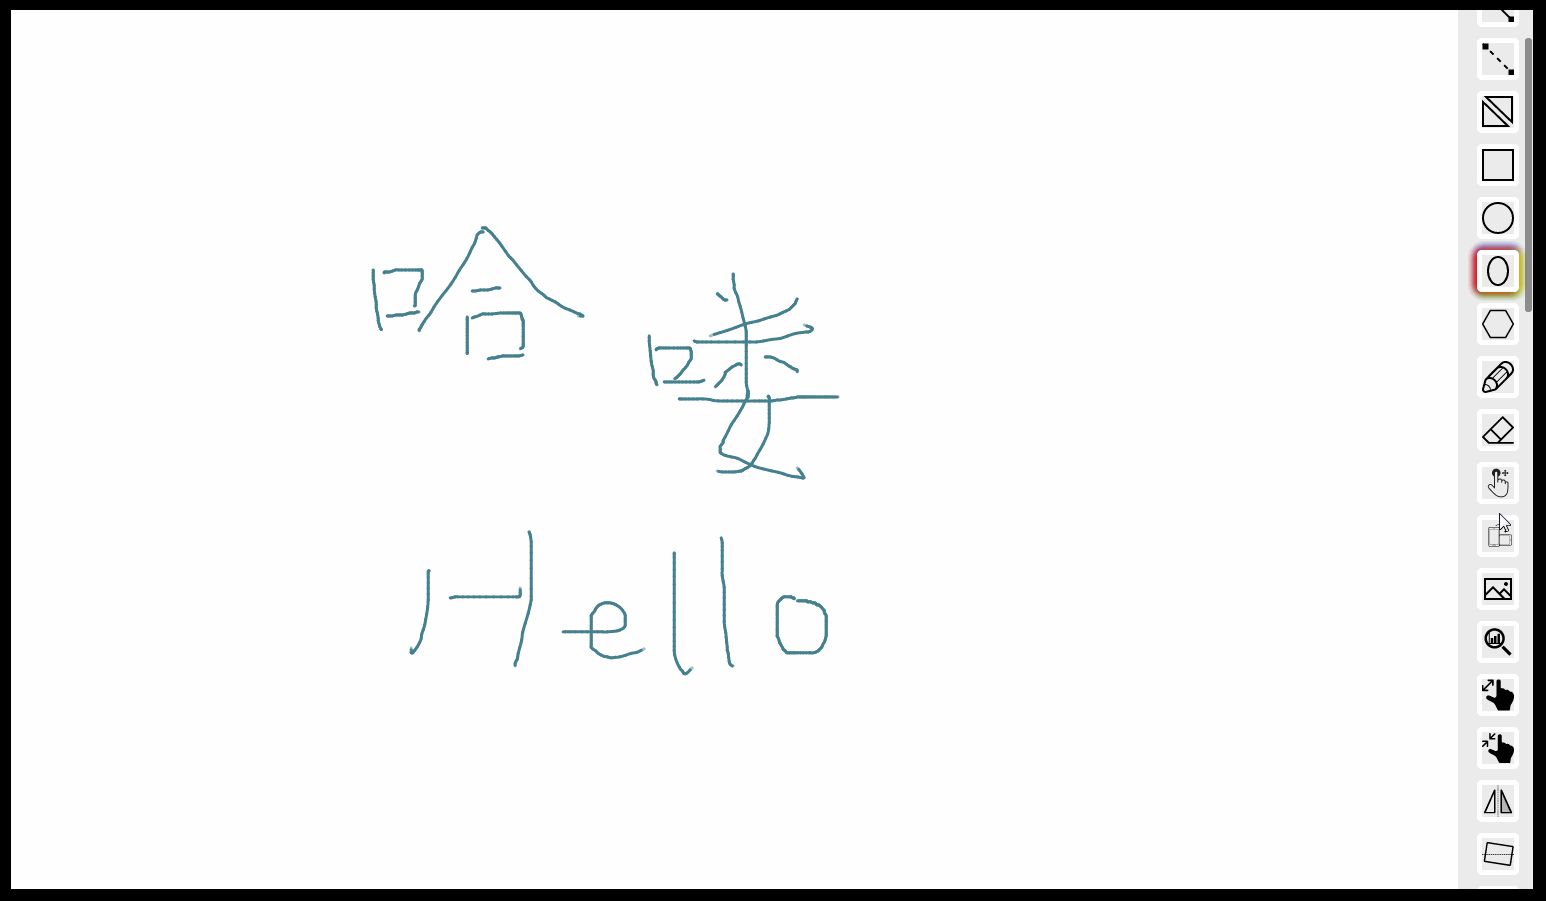 哈喽
Hello